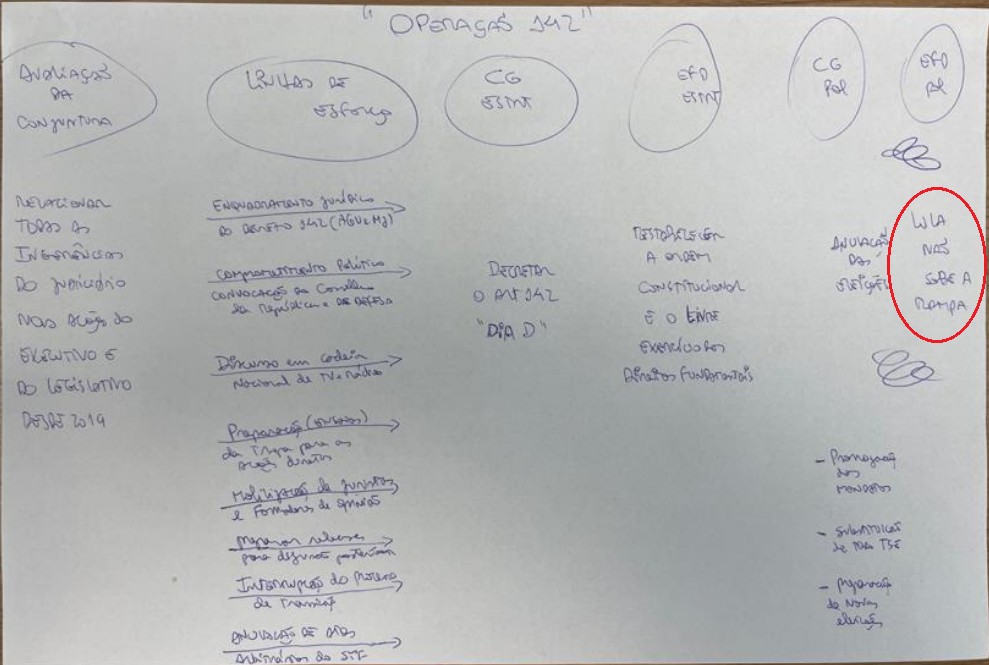 "OPERAÇÃO 142"
AVALIAÇÃO
DA
CONJUNTURA
LINHAS DE
ESFORÇO
CG
ESTRT
EFD
ESTRT
CG
POL
EFD
POL
RELACIONAR
TODAS AS
INTERFERÊNCIAS
DO JUDICIÁRIO
NAS AÇÕES DO
EXECUTIVO E
DO LEGISLATIVO
DESDE 2019
ENQUADRAMENTO jurídico
DO DECRETO 142 (AGU e MJ)
COMPROMETIMENTO Político
CONVOCAÇÃO do Conselho
da República e DE DEFESA
Discurso em cadeia
Nacional de TV e Rádio
Preparação
da Tropa para as
ações diretas
Mobilização de juristas
e Formadores de opinião
preparar
para posteriores
Interrupção do Processo
de Transição
ANULAÇÃO DE ATOS
Arbitrários do STF
DECRETAR
O ART 142
"DIA D"
RESTABELECER
A ORDEM
CONSTITUCIONAL
E O LIVRE
EXERCÍCIO DOS
DIREITOS FUNDAMENTAIS
ANULAÇÃO
DAS
ELEIÇÕES
- Prorrogação
dos
MANDATOS
- SUBSTITUIÇÃO
de todo TSE
- Preparação
de Novas
eleições
LULA
NÃO
SOBE A
RAMPA